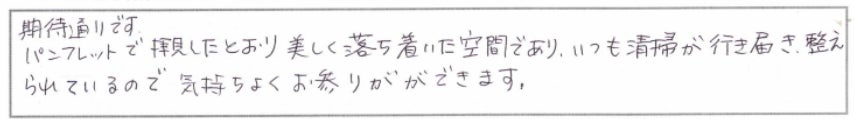 期待通りです。
パンフレットで拝見したとおり美しく落ち着いた空間であり、いつも清掃が行き届き、整え
られているので気持ちよくお参りがができます。